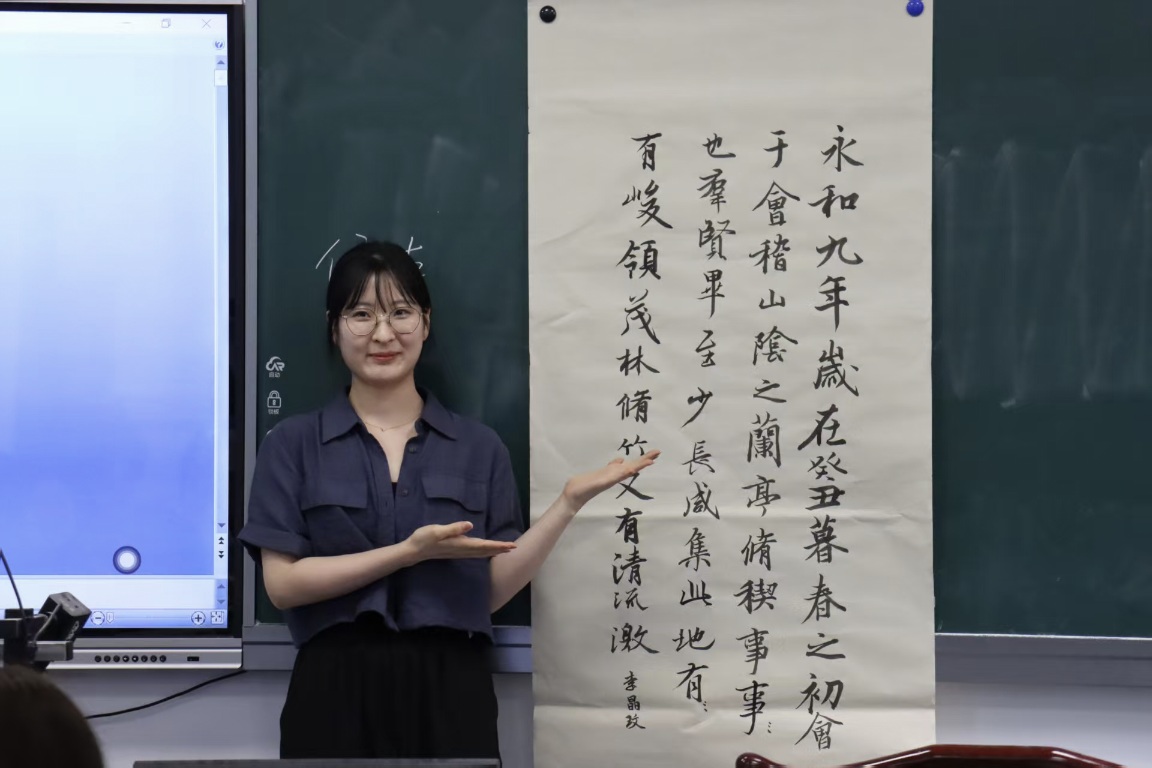 永和九年歲在癸丑暮春之初會
于會稽山陰之蘭亭脩稧事事
也羣賢畢至少長咸集此地有
有峻領茂林脩竹又有清流激
李晶玟